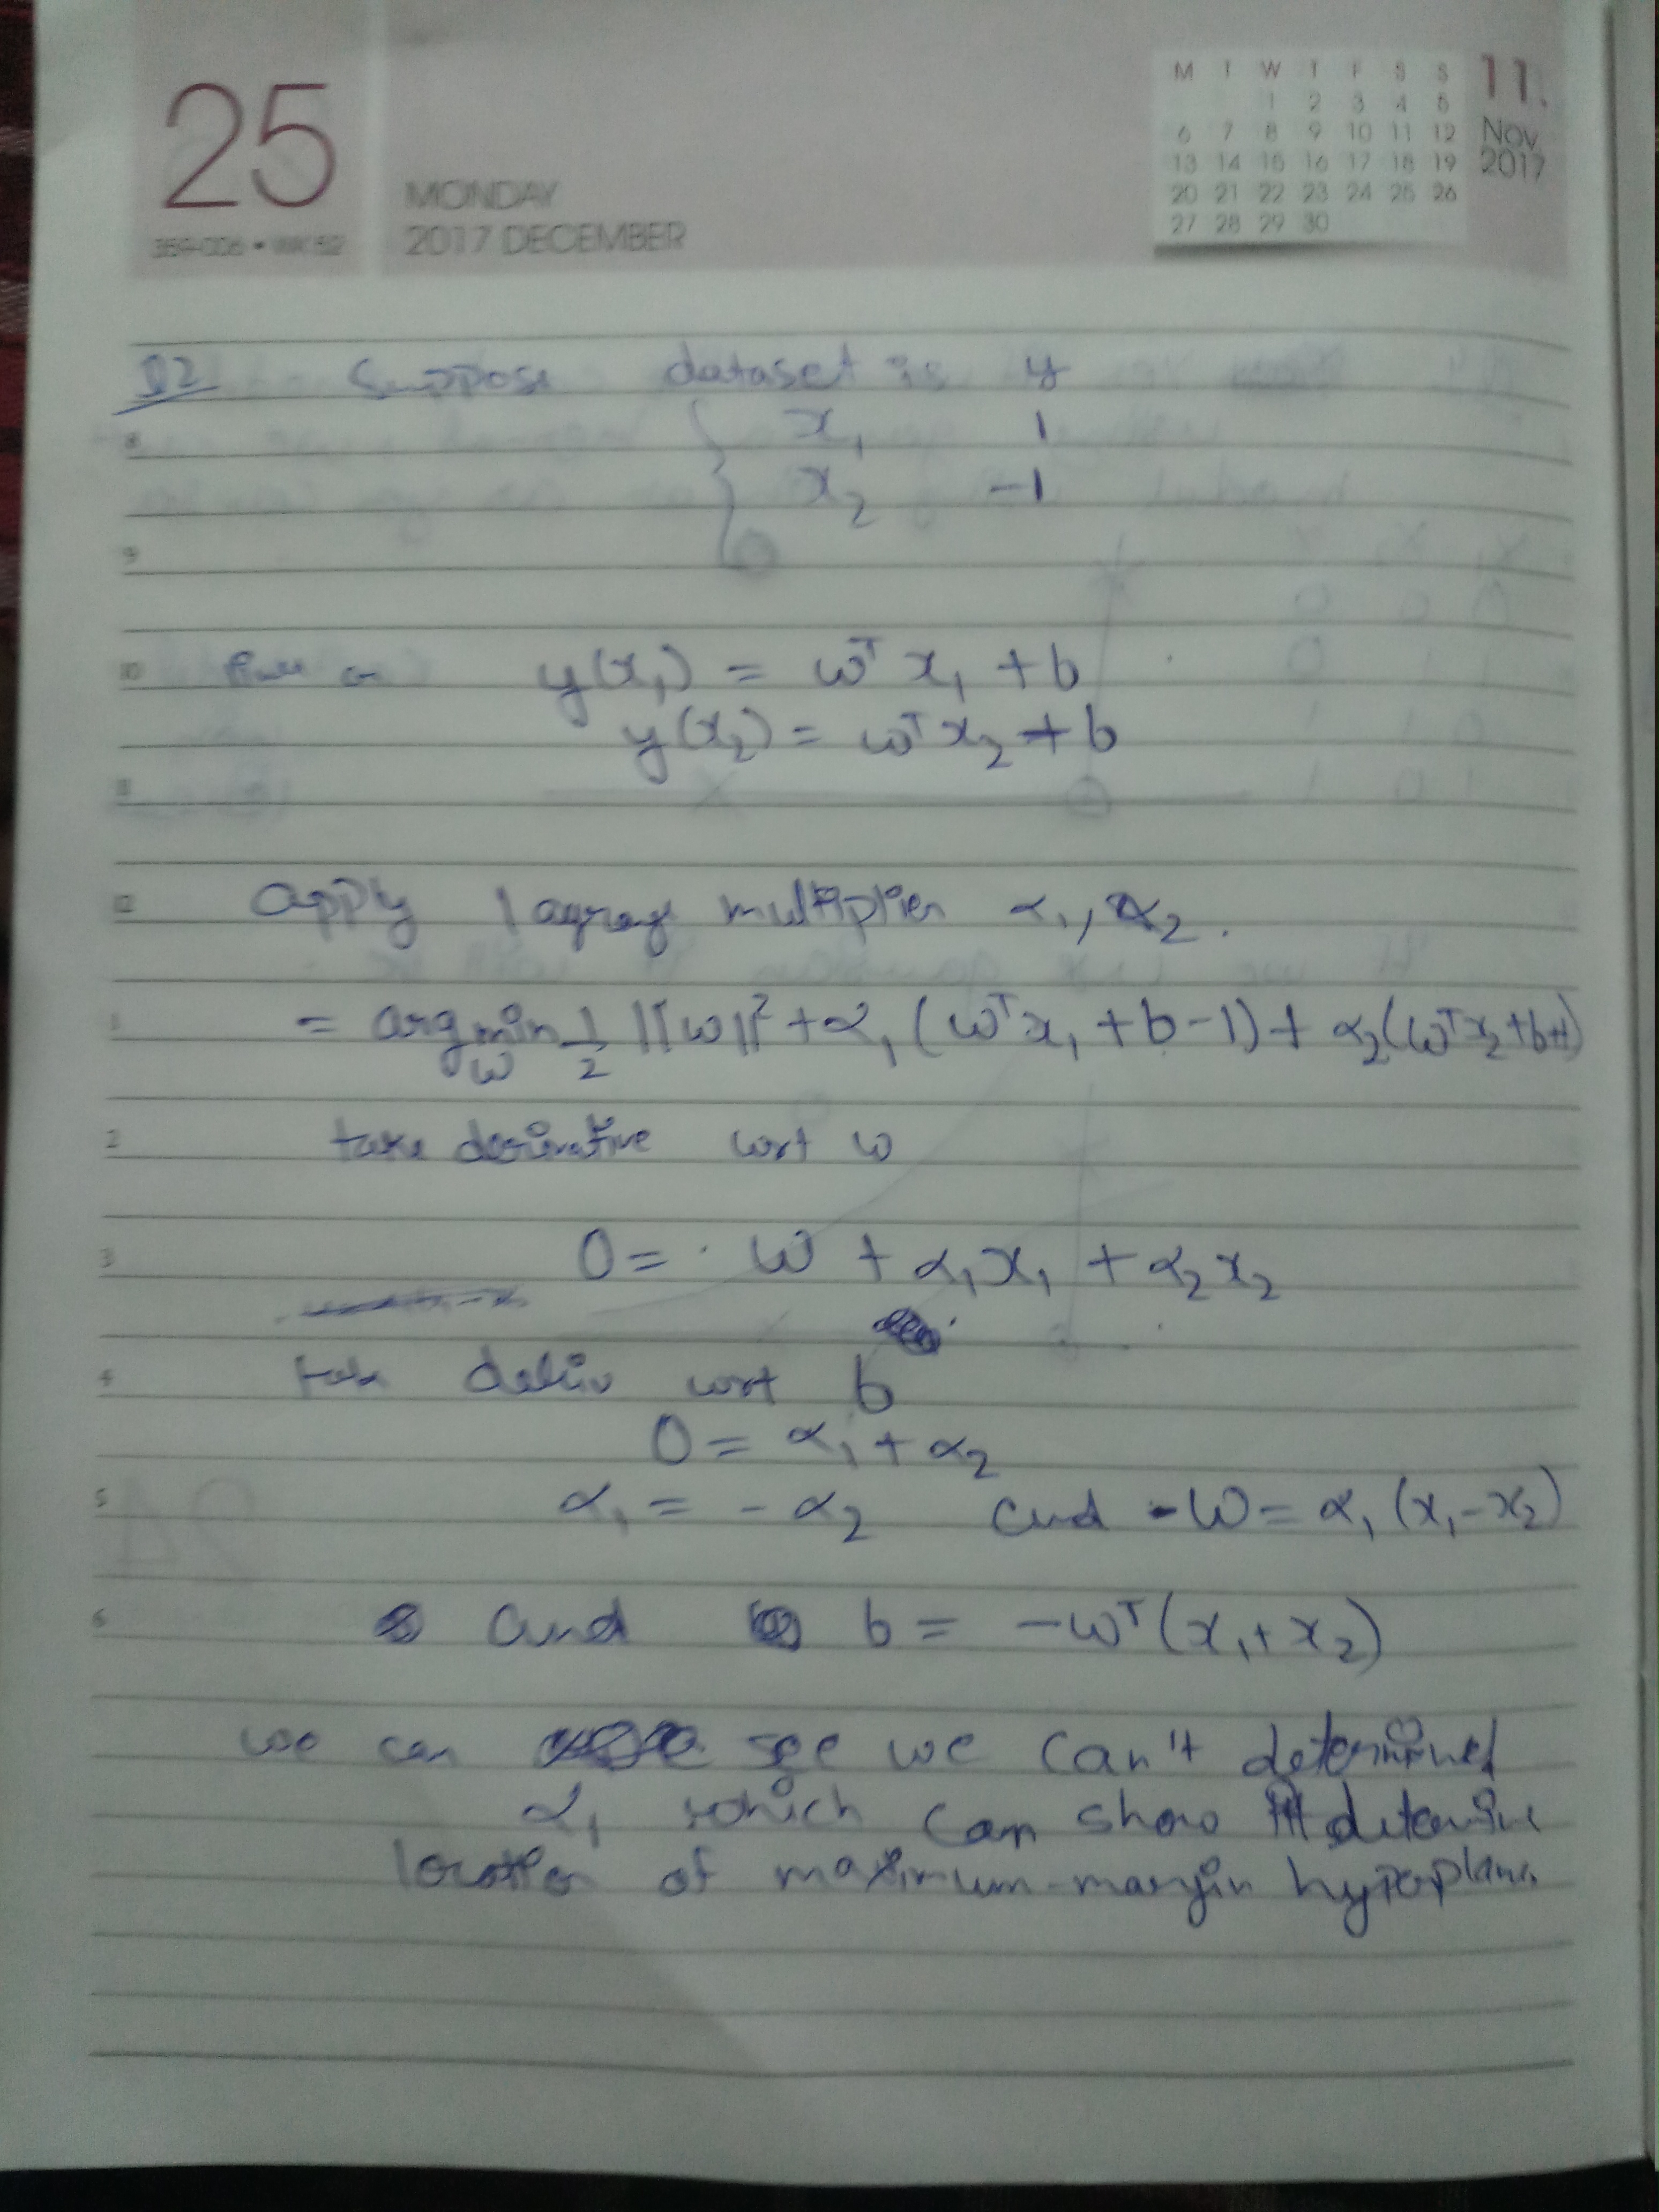 25
MONDAY
2017 DECEMBER
359-006 • WK 52
M T W T F S S
1 2 3 4 5
6 7 8 9 10 11 12
13 14 15 16 17 18 19
20 21 22 23 24 25 26
27 28 29 30
11.
Nov
2017
Suppose dataset is y
8 x₁ 1
x₂ -1
9
10 y(x₁) = wᵀ x₁ + b
y(x₂) = wᵀ x₂ + b
12 apply multiplier α₁, α₂.
1 = arg min w 1/2 ||w||² + α₁ (wᵀ x₁ + b - 1) + α₂ (wᵀ x₂ + b+1)
2 take derivative wrt w
3 0 = w + α₁x₁ + α₂x₂
4 wrt b
0 = α₁ + α₂
5 α₁ = - α₂ and -w = α₁ (x₁ - x₂)
6 and b = -wᵀ(x₁ + x₂)
we can see we can't determined
α₁ which can show determine
location of maximum-margin hyperplane